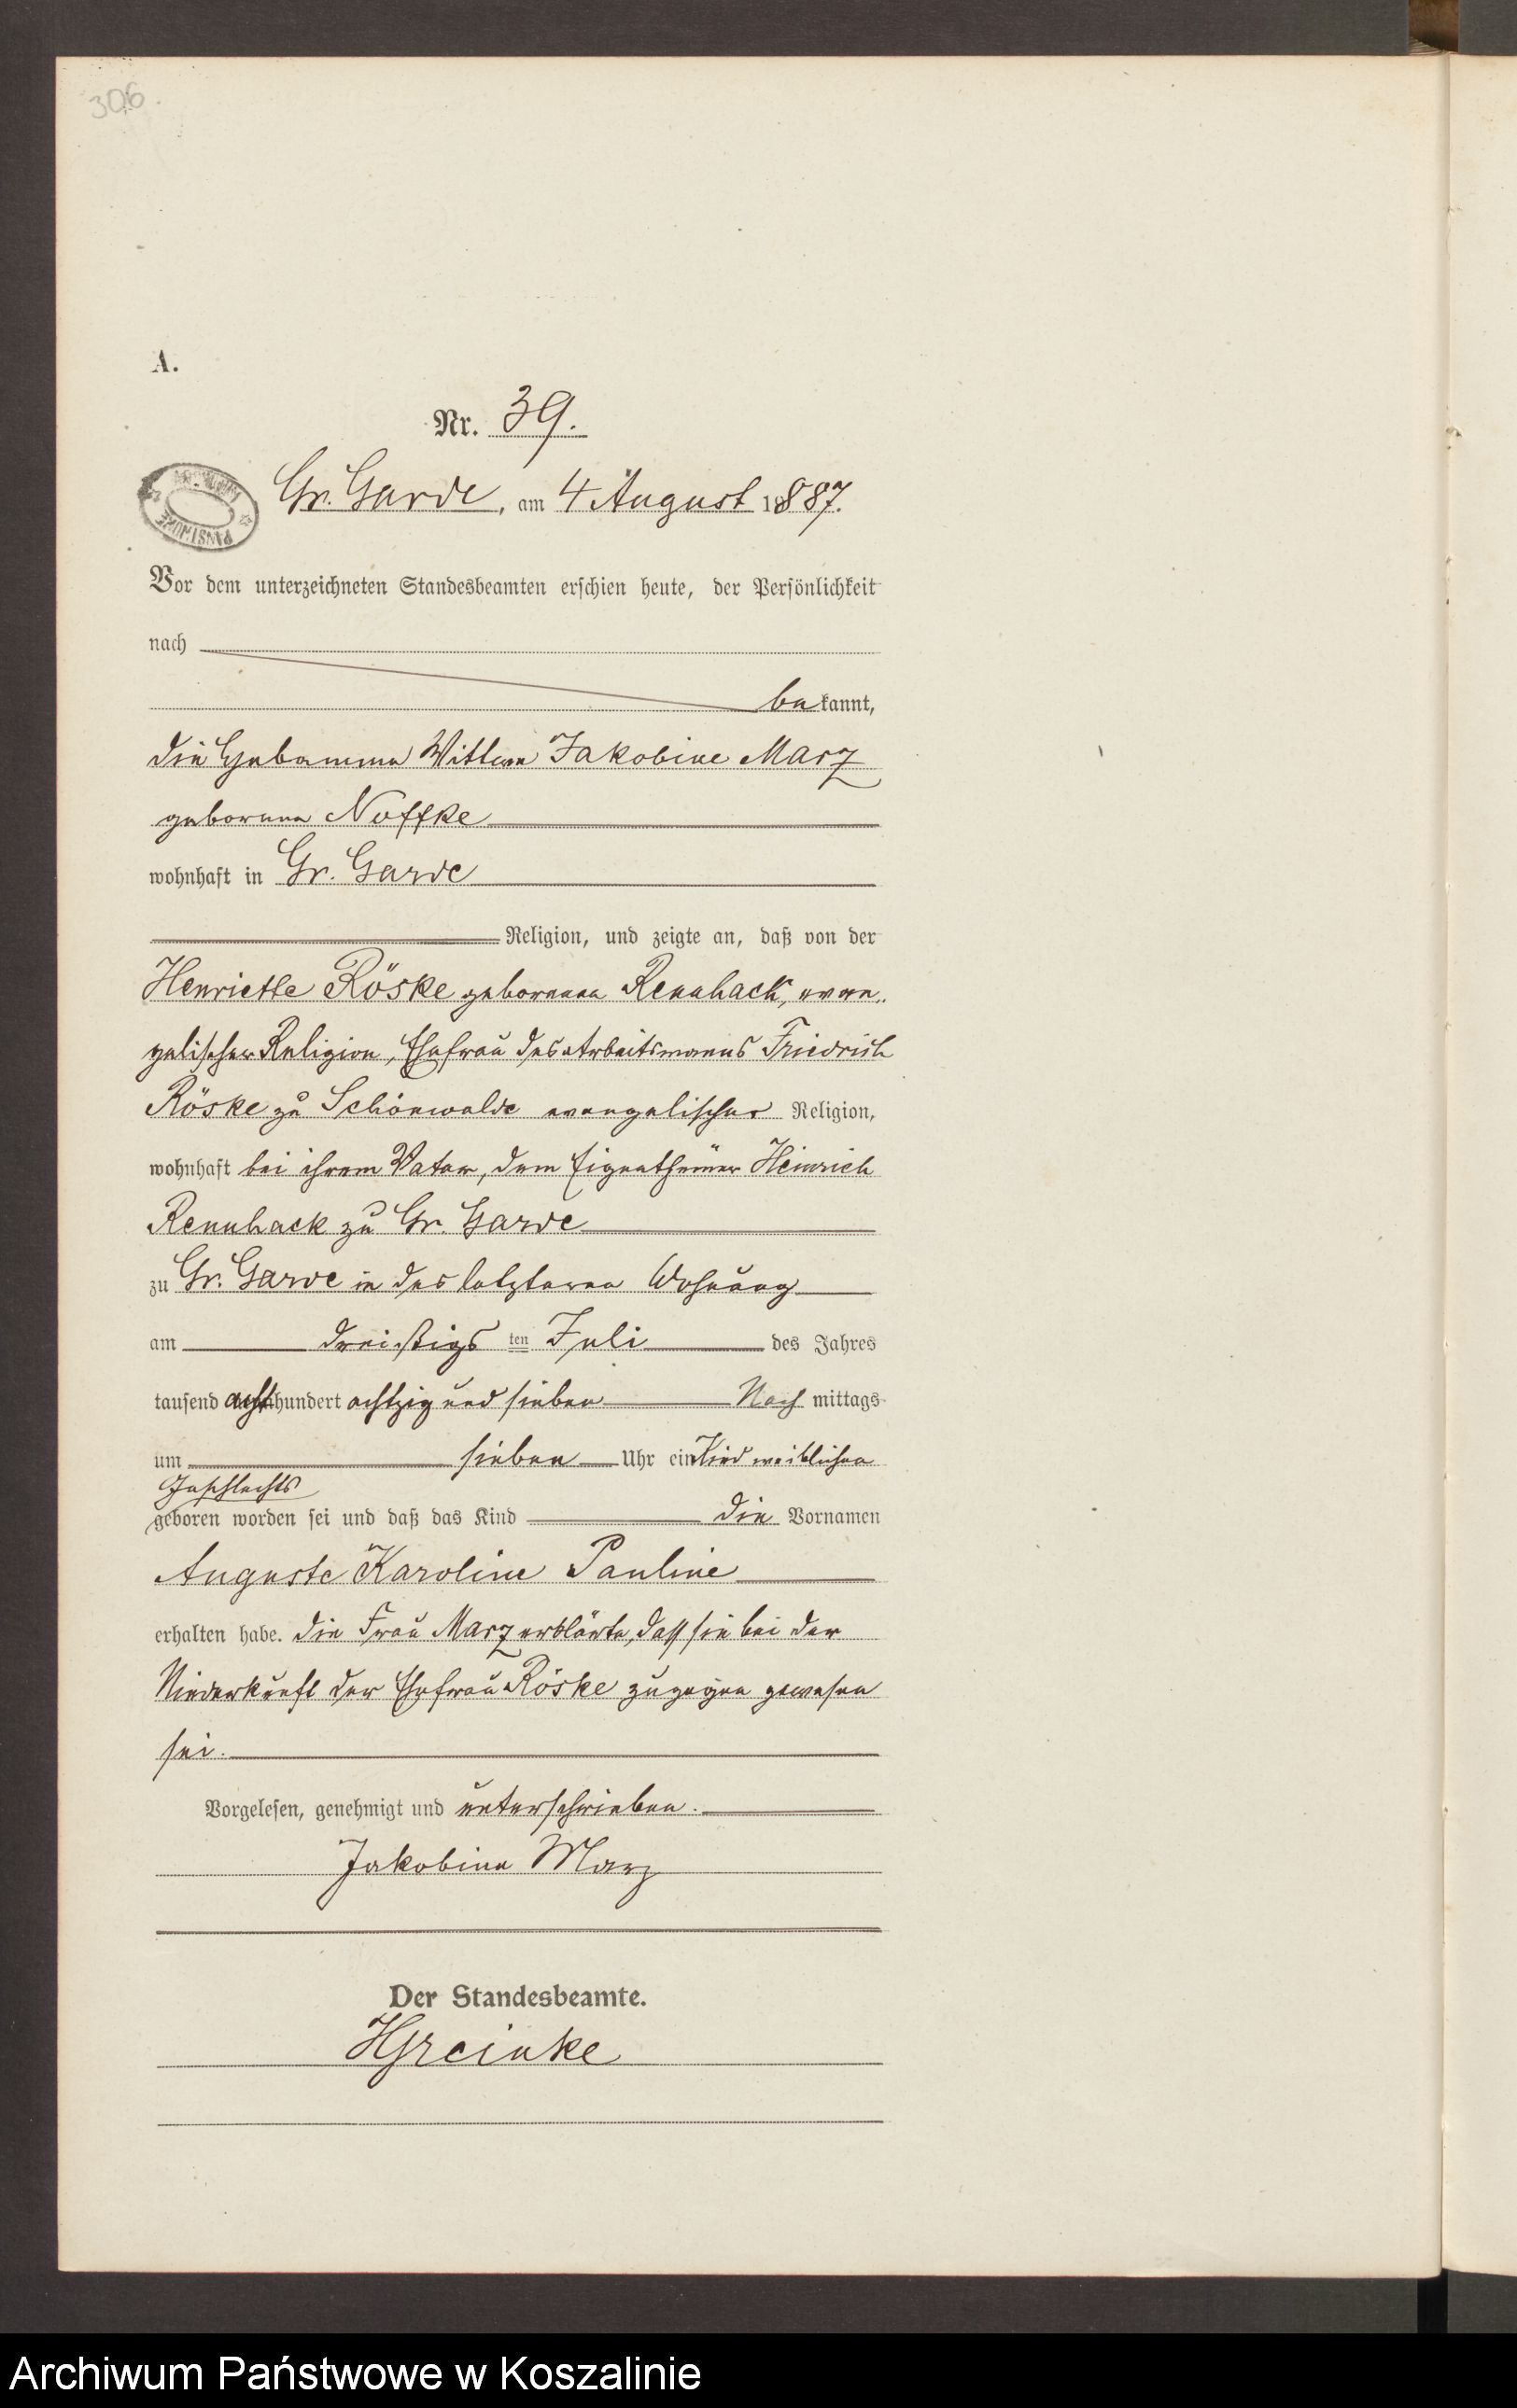 306.
A.
Nr. 39.
Gr. Garde, am 4 August 1887.
Vor dem unterzeichneten Standesbeamten erschien heute, der Persönlichkeit
nach
bekannt,
die Hebamme Wittwe Jakobine Marz
geborene Noffke
wohnhaft in Gr. Garde
Religion, und zeigte an, daß von der
Henriette Röske geborenen Rennhack, evan-
gelischer Religion, Ehefrau des Arbeitsmanns Friedrich
Röske zu Schönwalde evangelischer Religion,
wohnhaft bei ihrem Vater, dem Eigenthümer Heinrich
Rennhack zu Gr. Garde
zu Gr. Garde in des letzteren Wohnung
am dreißigsten Juli des Jahres
tausend achthundert achtzig und sieben Nachmittags
um sieben Uhr ein Kind weiblichen
Geschlechts
geboren worden sei und daß das Kind die Vornamen
Auguste Karoline Pauline
erhalten habe. Die Frau Marz erklärte, dass sie bei der
Niederkunft der Ehefrau Röske zugegen gewesen
sei.
Vorgelesen, genehmigt und unterschrieben.
Jakobine Marz
Der Standesbeamte.
HGreinke
Archiwum Państwowe w Koszalinie